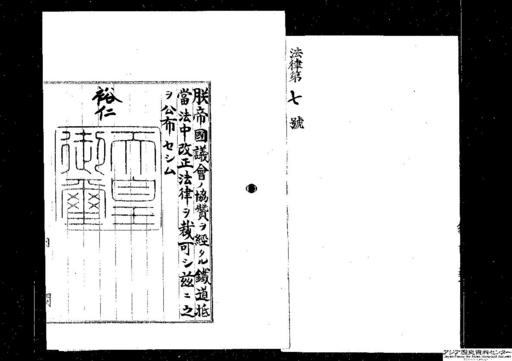 法律第七號
朕帝國議會ノ協贊ヲ經タル鐵道抵
當法中改正法律ヲ裁可シ茲ニ之
ヲ公布セシム
裕仁
天皇
御璽
内閣
アジア歴史資料センター